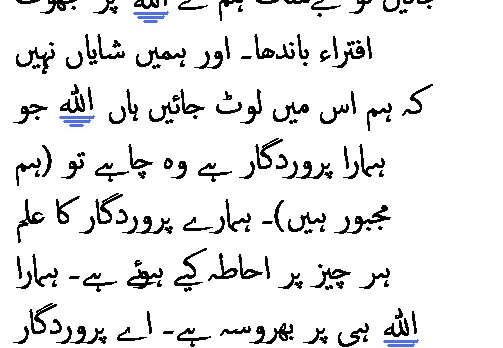 جائیں تو بےشک ہم نے الله پر جھوٹ
افتراء باندھا۔ اور ہمیں شایاں نہیں
کہ ہم اس میں لوٹ جائیں ہاں الله جو
ہمارا پروردگار ہے وہ چاہے تو (ہم
مجبور ہیں)۔ ہمارے پروردگار کا علم
ہر چیز پر احاطہ کیے ہوئے ہے۔ ہمارا
الله ہی پر بھروسہ ہے۔ اے پروردگار